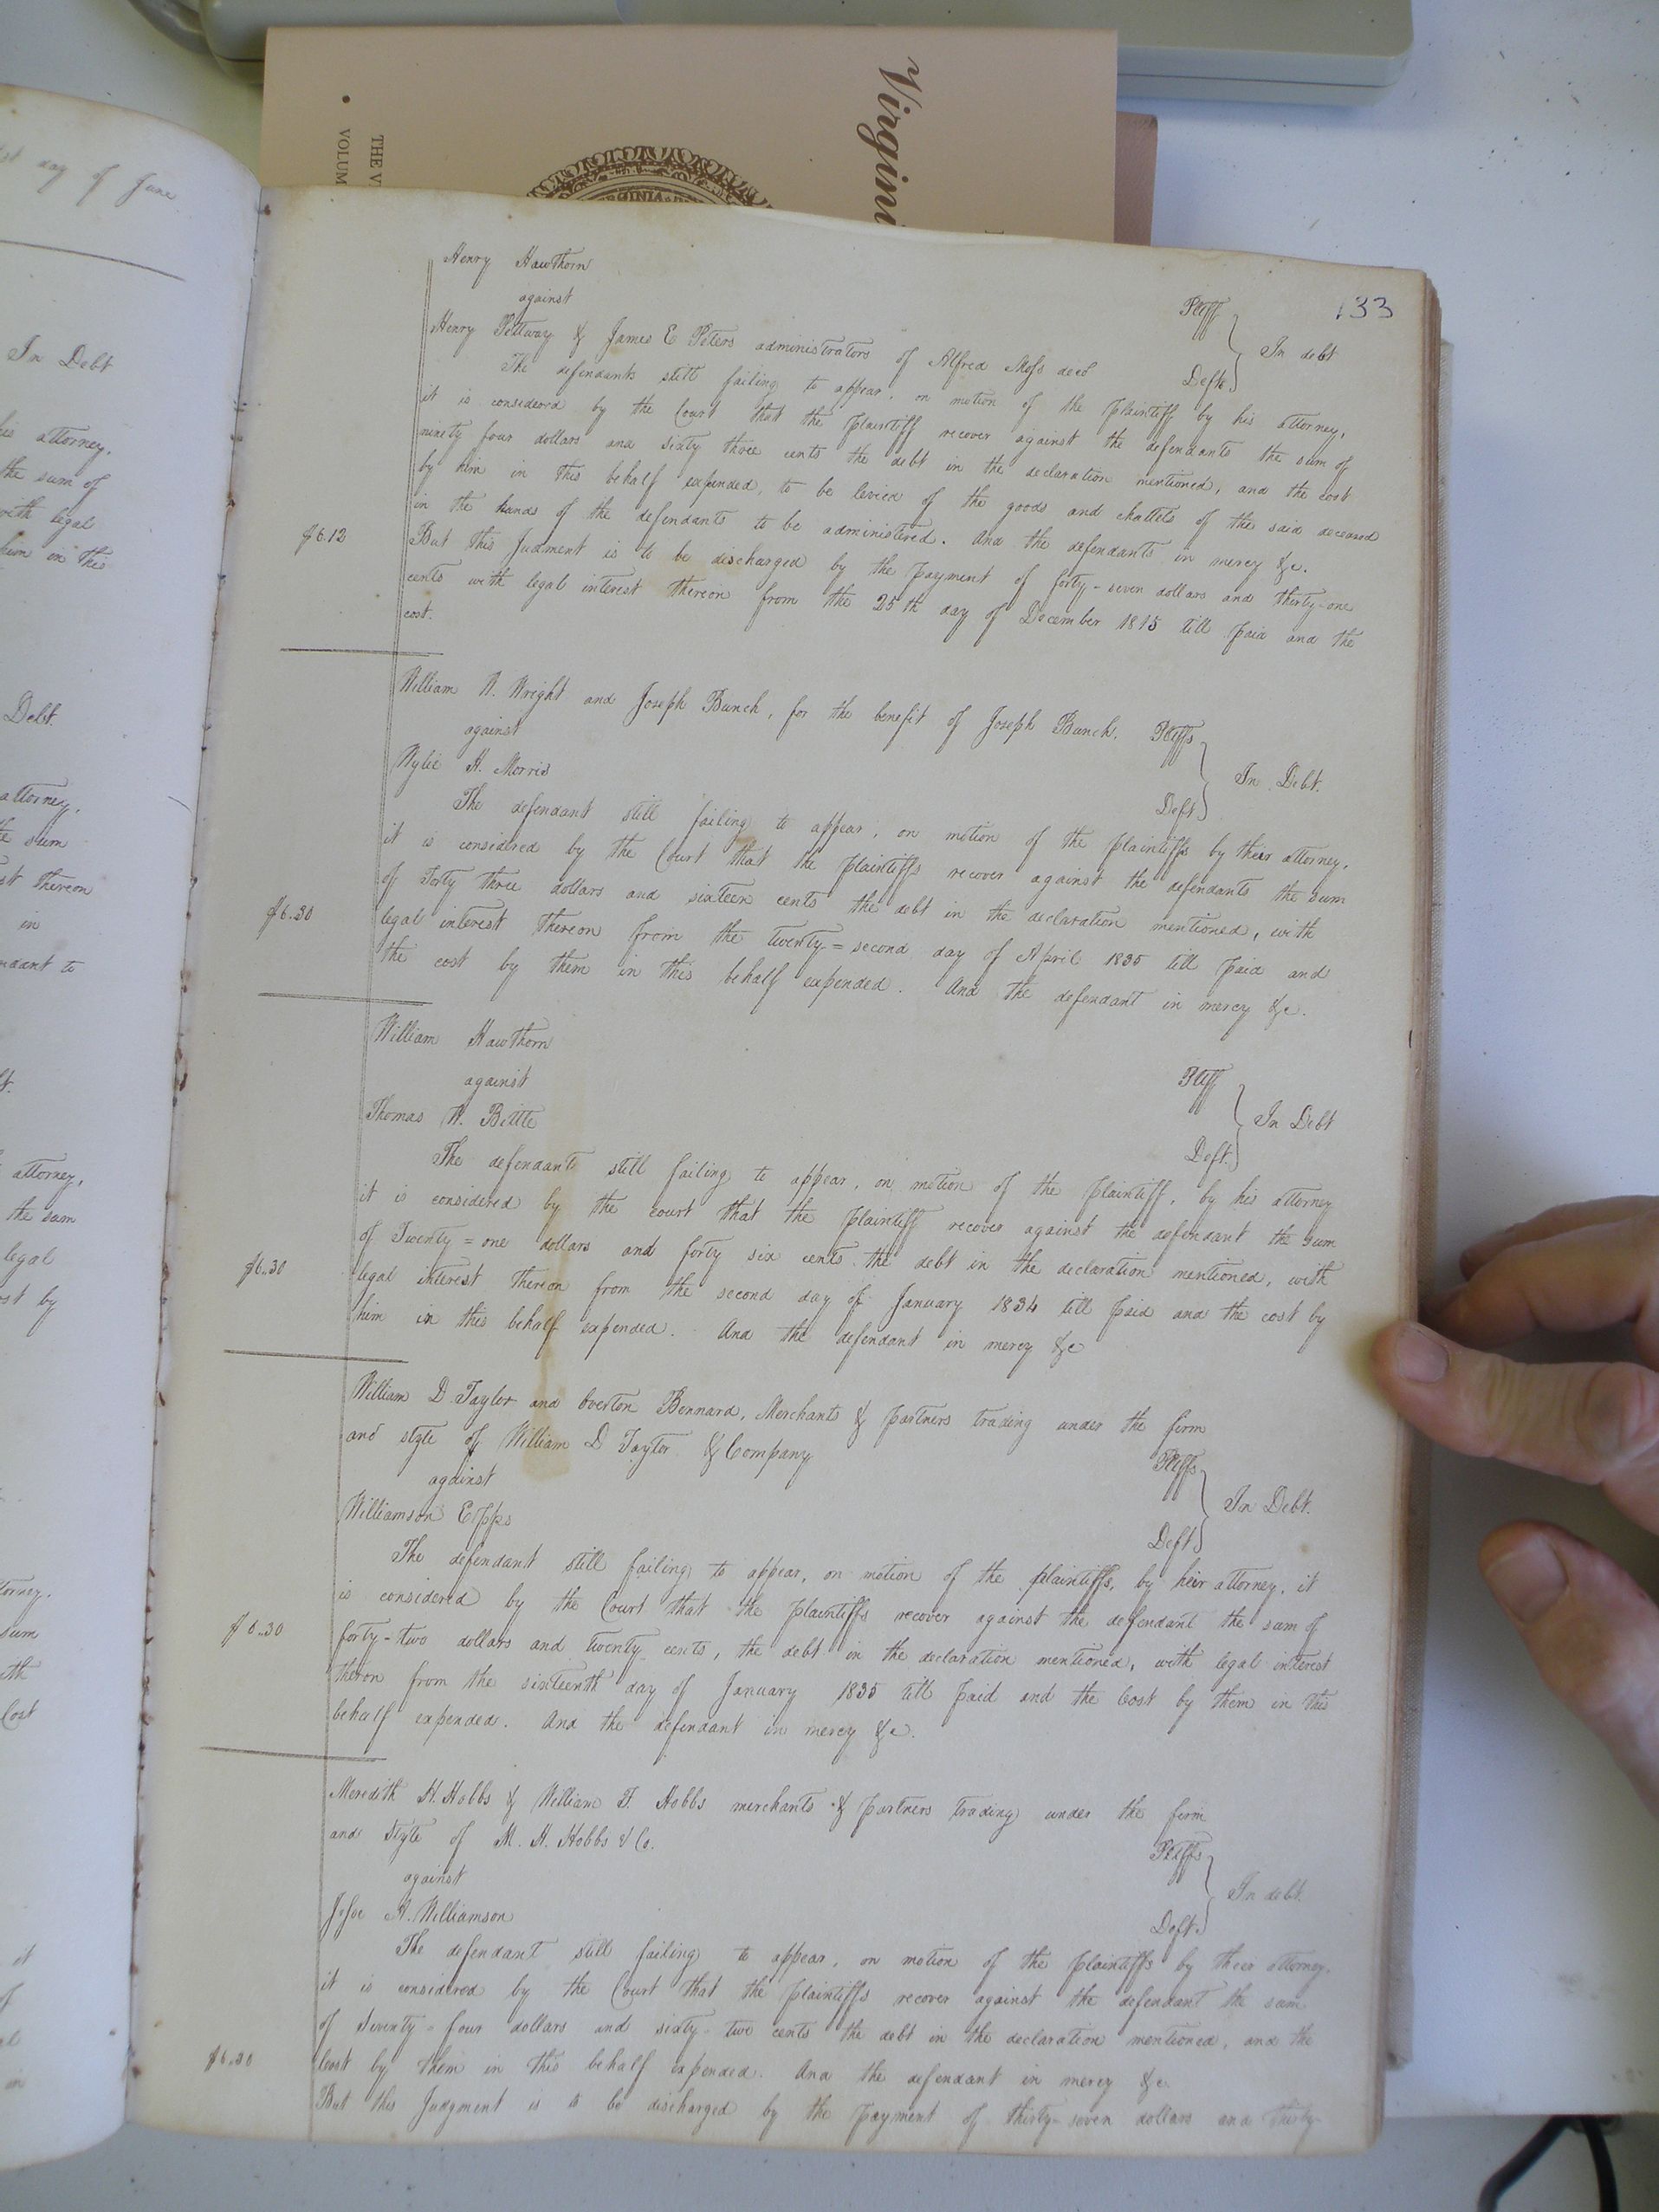 Virgini
THE V
VOLUM
RGINIA
st day of June
In Debt
his attorney,
the sum of
with legal
him in this
Debt.
attorney,
the sum
st thereon
in
ndant to
attorney,
the sum
legal
ost by
torney.
sum
th
Cost
it
of
in
133
Henry Hawthorn Pltff
against In debt
Henry Pettway & James E Peters administrators of Alfred Moss decd Defts.
The defendants still failing to appear, on motion of the plaintiff by his attorney,
it is considered by the Court that the plaintiff recover against the defendants the sum of
ninety four dollars and sixty three cents the debt in the declaration mentioned, and the cost
by him in this behalf expended, to be levied of the goods and chattels of the said deceased
in the hands of the defendants to be administered. And the defendants in mercy &c.
$6.12 But this Judment is to be discharged by the payment of forty-seven dollars and thirty-one
cents with legal interest thereon from the 25th day of December 1815 till paid and the
cost.
William W. Wright and Joseph Bunch, for the benefit of Joseph Bunch. Pltffs
against In Debt.
Wylie H. Morris Deft.
The defendant still failing to appear, on motion of the plaintiffs by their attorney,
it is considered by the Court that the plaintiffs recover against the defendants the sum
of Forty three dollars and sixteen cents the debt in the declaration mentioned, with
$6.30 legal interest thereon from the twenty=second day of April 1835 till paid and
the cost by them in this behalf expended. And the defendant in mercy &c.
William Hawthorn Pltff
against In Debt
Thomas W. Bittle Deft.
The defendant still failing to appear, on motion of the plaintiff, by his attorney
it is considered by the court that the plaintiff recover against the defendant the sum
of Twenty=one dollars and forty six cents the debt in the declaration mentioned, with
$6.30 legal interest thereon from the second day of January 1834 till paid and the cost by
him in this behalf expended. And the defendant in mercy &c
William D Taylor and Overton Bennard, Merchants & partners trading under the firm
and style of William D Taylor & Company Pltffs
against In Debt.
Williamson Epps Deft
The defendant still failing to appear, on motion of the plaintiffs, by heir attorney, it
is considered by the Court that the plaintiffs recover against the defendant the sum of
$6.30 forty-two dollars and twenty cents, the debt in the declaration mentioned, with legal interest
theron from the sixteenth day of January 1835 till paid and the Cost by them in this
behalf expended. And the defendant in mercy &c.
Meredith H. Hobbs & William F. Hobbs merchants & partners trading under the firm
and style of M. H. Hobbs & Co. Pltffs
against In debt.
Jesse H. Williamson Deft.
The defendant still failing to appear, on motion of the plaintiffs by their attorney,
it is considered by the Court that the plaintiffs recover against the defendant the sum
of Seventy-four dollars and sixty-two cents the debt in the declaration mentioned, and the
$6.30 Cost by them in this behalf expended. And the defendant in mercy &c.
But this Judgment is to be discharged by the payment of thirty-seven dollars and thirty